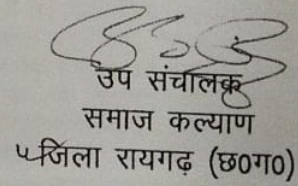 उप संचालक
समाज कल्याण
जिला रायगढ़ (छ0ग0)